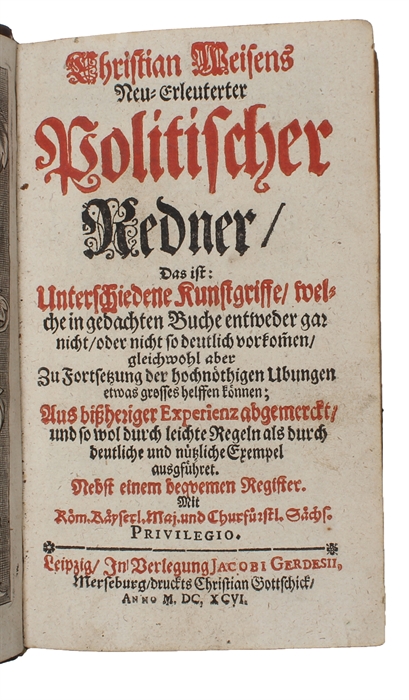 Christian Weisens
Neu-Erleuterter
Politischer
Redner/
Das ist:
Unterschiedene Kunstgriffe/ wel-
che in gedachten Buche entweder gar
nicht/ oder nicht so deutlich vorkom̃en/
gleichwohl aber
Zu Fortsetzung der hochnöthigen Ubungen
etwas grosses helffen können;
Aus bißheriger Experienz abgemerckt/
und so wol durch leichte Regeln als durch
deutliche und nützliche Exempel
ausgführet.
Nebst einem beqvemen Register.
Mit
Röm. Käyserl. Maj. und Churfürstl. Sächs.
PRIVILEGIO.
Leipzig/ In Verlegung JACOBI GERDESII,
Merseburg/ druckts Christian Gottschick/
ANNO M. DC. XCVI.